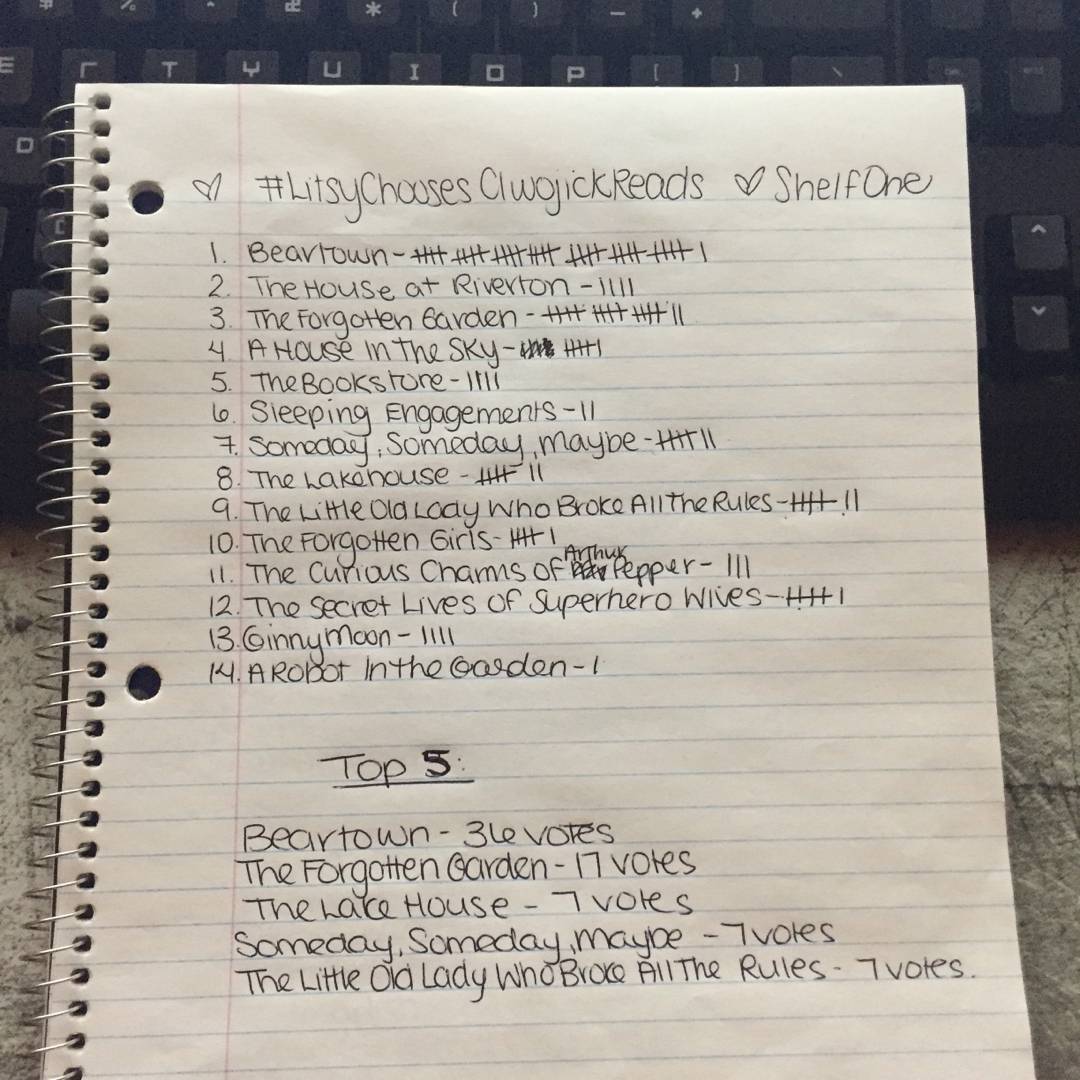 ♡ #LitsyChoosesClwojickReads ♡ ShelfOne
1. Beartown - 卌 卌 卌 卌 卌 卌 卌 |
2. The House at Riverton - ||||
3. The Forgotten Garden - 卌 卌 卌 ||
4 A House In The Sky - 卌 |
5. The Bookstore - ||||
6. Sleeping Engagements - ||
7. Someday, Someday, Maybe - 卌 ||
8. The Lakehouse - 卌 ||
9. The Little Old Lady Who Broke All The Rules - 卌 ||
10. The Forgotten Girls - 卌 |
11. The Curious Charms Of Arthur Pepper - |||
12. The Secret Lives Of Superhero Wives - 卌 |
13. Ginny Moon - ||||
14. A Robot In the Garden - |
Top 5:
Beartown - 36 votes
The Forgotten Garden - 17 votes
The Lake House - 7 votes
Someday, Someday, Maybe - 7 votes
The Little Old Lady Who Broke All The Rules - 7 votes.